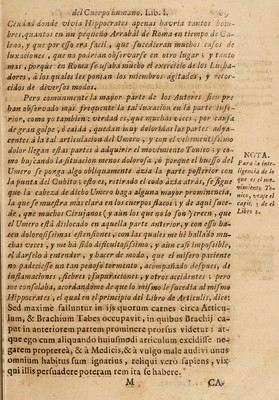 del Cuerpo humano. Lib. I.
Ciudad donde vivia Hippocrates apenas havria tantos hom-
bres, quantos en un pequeño Arrabal de Roma en tiempo de Ga-
leno, y que por esso era facil, que sucedieran muchos casos de
luxaciones, que no podrian observarse en otro lugar; y tanto
mas, porque en Roma se usaba mucho el exercicio de los Lucha-
dores, à los quales les ponian los miembros agitados, y retor-
cidos de diversos modos.
Pero comunmente la mayor parte de los Autores siempre
han observado mas frequente la tal luxacion en la parte infe-
rior, como yo tambien: verdad es, que muchas veces, por causa
de gran golpe, ò caida, quedan muy doloridas las partes adya-
centes à la tal articulacion del Umero; y con el vehementissimo
dolor llegan estas partes à adquirir el movimiento Tonico; y co-
mo buscando la situacion menos dolorosa, ò porque el huesso del
Umero se ponga algo obliquamente àzia la parte posterior con
la punta del Cubito; estos, retirado el codo àzia atràs, se sigue
que la cabeza de dicho Umero haga alguna mayor prominencia,
la que se muestra mas clara en los cuerpos flacos; y de aqui suce-
de, que muchos Cirujanos (y aun los que no lo son) creen, que
el Umero està dislocado en aquella parte anterior, y con esso ha-
cen dolorosissimas estensiones; con las quales me he hallado mu-
chas veces, y me ha sido dificultosissimo, y aun casi impossible,
el darselo à entender, y hacer de modo, que el misero paciente
no padeciesse un tan penoso tormento, acompañado despues, de
inflamaciones, fiebres, supuraciones, y otros accidentes; pero
me consolaba, acordandome de que lo mismo le sucedia al mismo
Hippocrates, el qual en el principio del Libro de Articulis, dice:
Sed maxime falluntur in ijs quorum carnes circa Articu-
lum, & Brachium Tabes occupavit, in quibus Brachij ca-
put in anteriorem partem prominere prorsus videtur: at-
que ego cum aliquando huiusmodi articulum excidisse ne-
garem propterea, & à Medicis, & à vulgo male audivi unus
omnium habitus sum ignarius, reliqui verò sapiens, vix
qui illis persuadere poteram rem ita se habere.
NOTA.
Para la inte-
ligencia de lo
que es el mo-
vimiento To-
nico, vease el
capit. 3 de el
Libro 2.
M
CA-